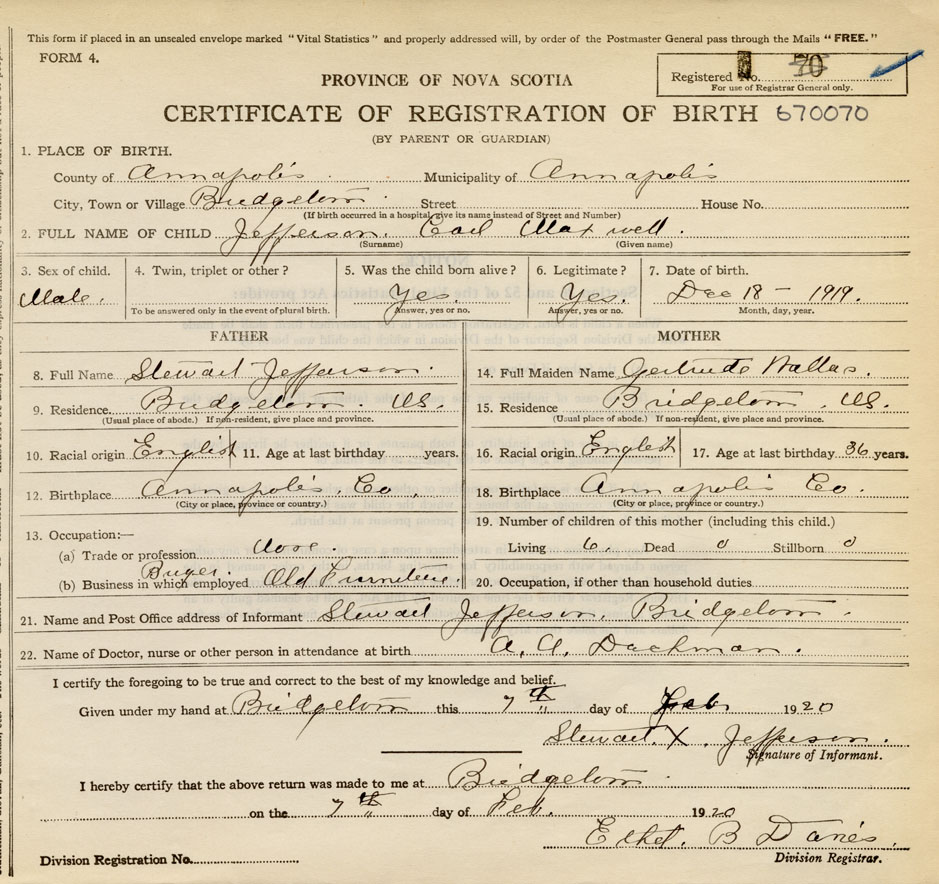 This form if placed in an unsealed envelope marked "Vital Statistics" and properly addressed will, by order of the Postmaster General pass through the Mails "FREE."
FORM 4.
Registered No. 70
For use of Registrar General only.
PROVINCE OF NOVA SCOTIA
CERTIFICATE OF REGISTRATION OF BIRTH 670070
(BY PARENT OR GUARDIAN)
1. PLACE OF BIRTH.
County of Annapolis Municipality of Annapolis
City, Town or Village Bridgetown Street House No.
(If birth occurred in a hospital, give its name instead of Street and Number)
2. FULL NAME OF CHILD Jefferson. Earl Maxwell.
(Surname) (Given name)
3. Sex of child. 4. Twin, triplet or other? 5. Was the child born alive? 6. Legitimate? 7. Date of birth.
Male. Yes. Yes. Dec 18 - 1919.
To be answered only in the event of plural birth. Answer, yes or no. Answer, yes or no. Month, day, year.
FATHER MOTHER
8. Full Name Stewart Jefferson. 14. Full Maiden Name Gertrude
9. Residence. Bridgetown. 15. Residence Bridgetown.
(Usual place of abode.) If non-resident, give place and province. (Usual place of abode.) If non-resident, give place and province.
10. Racial origin English 11. Age at last birthday years. 16. Racial origin English 17. Age at last birthday 36 years.
12. Birthplace Annapolis. Co. 18. Birthplace Annapolis Co.
(City or place, province or country.) (City or place, province or country.)
13. Occupation:— 19. Number of children of this mother (including this child.)
(a) Trade or profession Living 6. Dead 0 Stillborn 0
(b) Business in which employed Old Furniture. 20. Occupation, if other than household duties
21. Name and Post Office address of Informant Stewart Jefferson, Bridgetown.
22. Name of Doctor, nurse or other person in attendance at birth A. A. Dechman.
I certify the foregoing to be true and correct to the best of my knowledge and belief.
Given under my hand at Bridgetown this 7th day of Feb 1920
Stewart X. Jefferson.
Signature of Informant.
I hereby certify that the above return was made to me at Bridgetown.
on the 7th day of Feb. 1920
Ethel. B Daniels.
Division Registration No. Division Registrar.